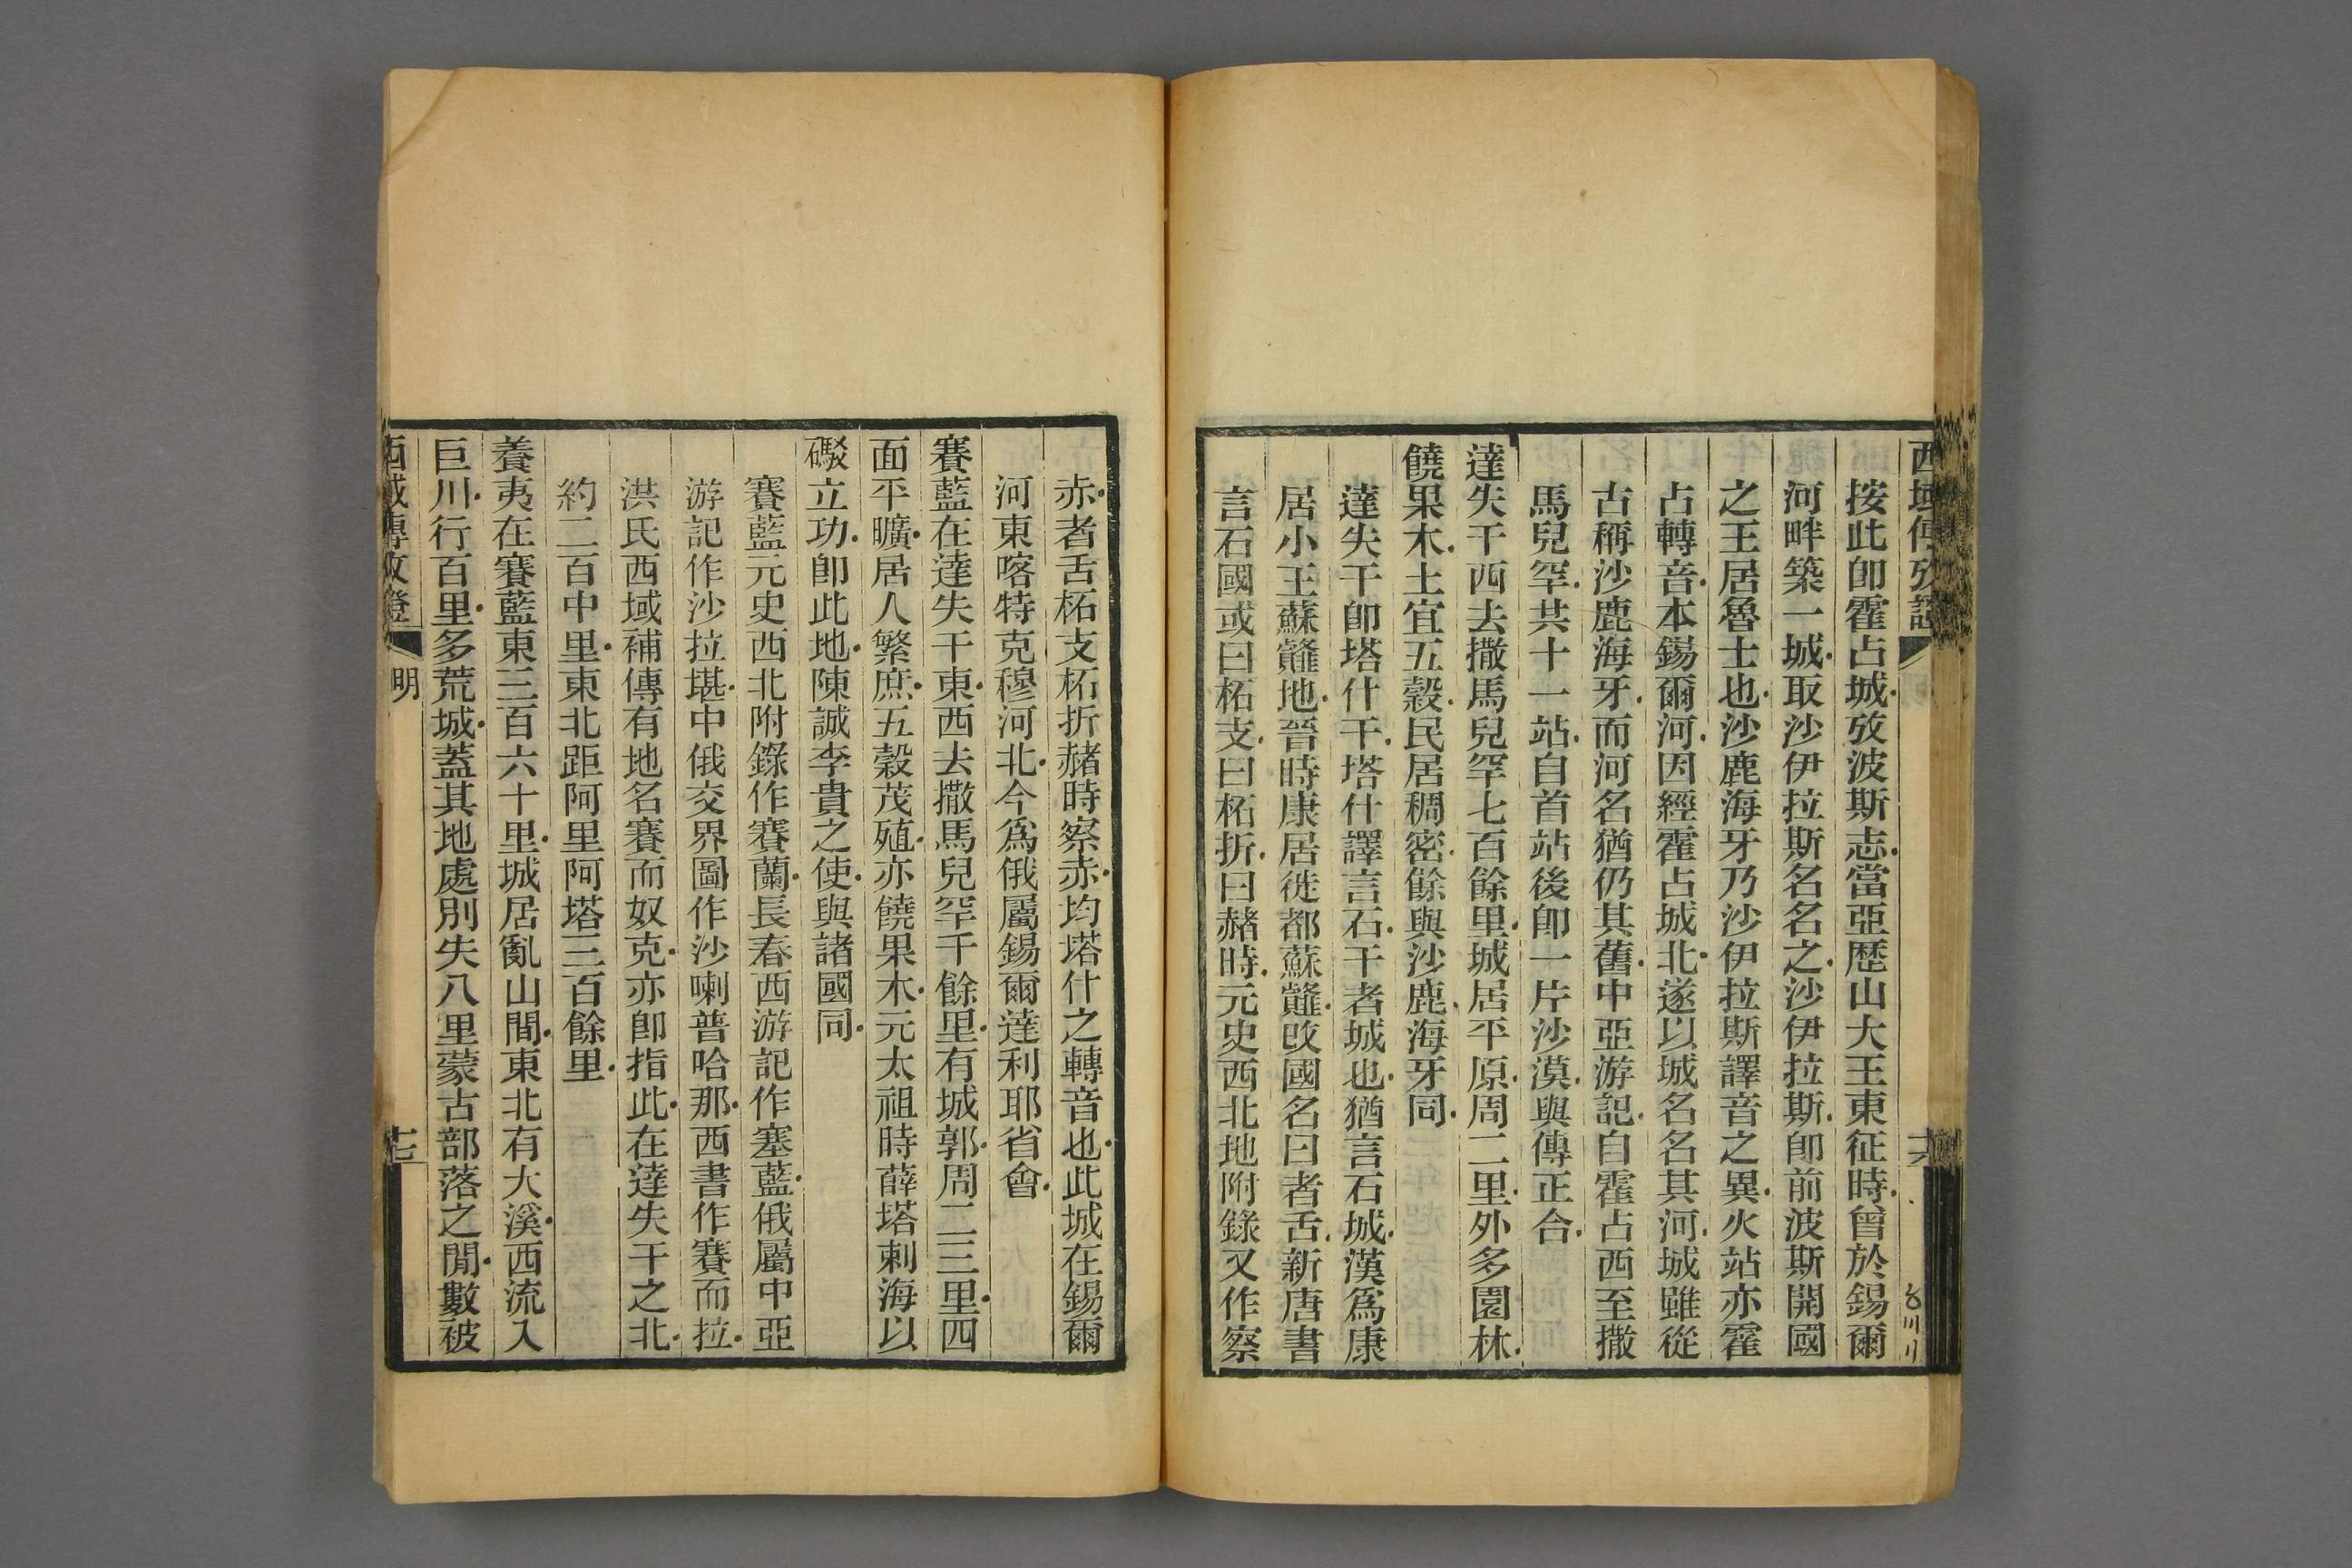 西域傳攷證
按此卽霍占城攷波斯志當亞歷山大王東征時曾於錫爾
河畔築一城取沙伊拉斯名名之沙伊拉斯卽前波斯開國
之王居魯士也沙鹿海牙乃沙伊拉斯譯音之異火站亦霍
占轉音本錫爾河因經霍占城北遂以城名名其河城雖從
古稱沙鹿海牙而河名猶仍其舊中亞游記自霍占西至撒
馬兒罕共十一站自首站後卽一片沙漠與傳正合
達失干西去撒馬兒罕七百餘里城居平原周二里外多園林
饒果木土宜五穀民居稠密餘與沙鹿海牙同
達失干卽塔什干塔什譯言石干者城也猶言石城漢爲康
居小王蘇䪥地晉時康居徙都蘇䪥改國名曰者舌新唐書
言石國或曰柘支曰柘折曰赭時元史西北地附錄又作察
十六
赤者舌柘支柘折赭時察赤均塔什之轉音也此城在錫爾
河東喀特克穆河北今爲俄屬錫爾達利耶省會
賽藍在達失干東西去撒馬兒罕千餘里有城郭周二三里四
面平曠居人繁庶五穀茂殖亦饒果木元太祖時薛塔剌海以
礮立功卽此地陳誠李貴之使與諸國同
賽藍元史西北附錄作賽蘭長春西游記作塞藍俄屬中亞
游記作沙拉堪中俄交界圖作沙喇普哈那西書作賽而拉
洪氏西域補傳有地名賽而奴克亦卽指此在達失干之北
約二百中里東北距阿里阿塔三百餘里
養夷在賽藍東三百六十里城居亂山間東北有大溪西流入
巨川行百里多荒城蓋其地處別失八里蒙古部落之閒數被
西域傳攷證
明
十七